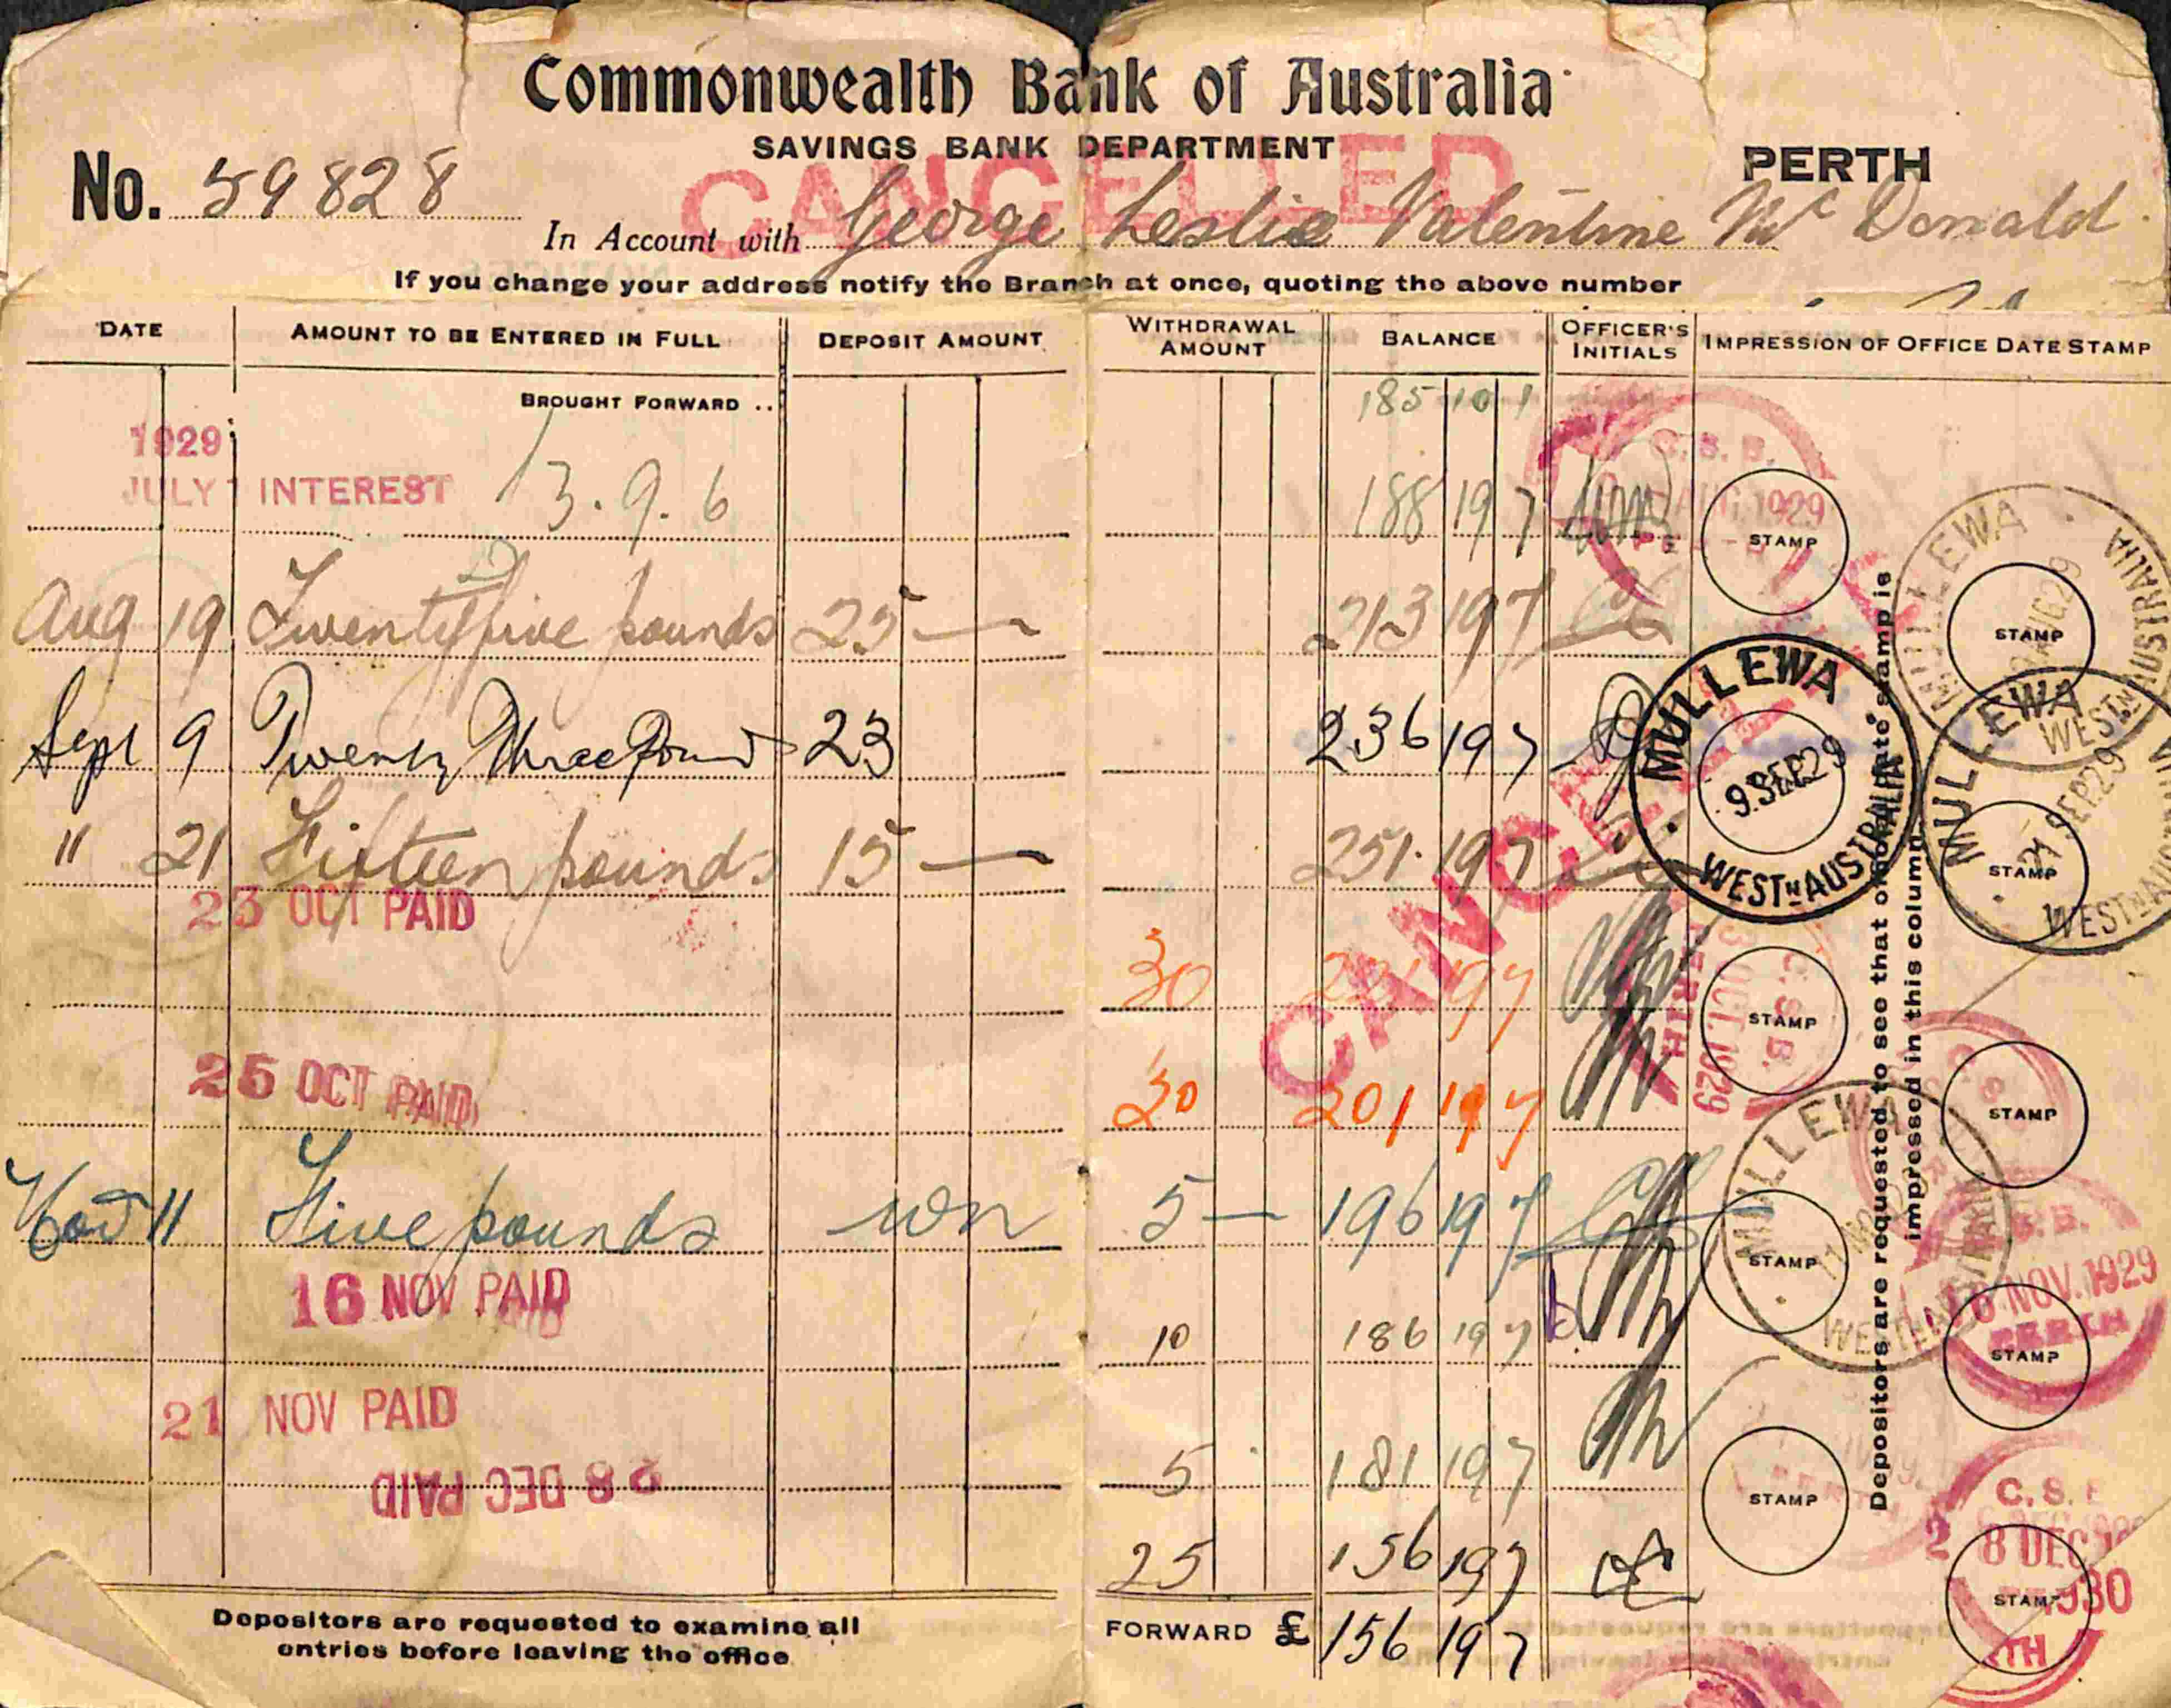 Commonwealth Bank of Australia
SAVINGS BANK DEPARTMENT
PERTH
CANCELLED
No. 59828
In Account with George Leslie Valentine Mc Donald
If you change your address notify the Branch at once, quoting the above number
DATE AMOUNT TO BE ENTERED IN FULL DEPOSIT AMOUNT WITHDRAWAL AMOUNT BALANCE OFFICER'S INITIALS IMPRESSION OF OFFICE DATE STAMP
BROUGHT FORWARD .. 185 10 1
1929
JULY INTEREST 3.9.6 188 19 7
Aug 19 Twenty five pounds 25 — 213 19 7
Sept 9 Twenty Three Pound 23 236 19 7
" 21 Fifteen pounds 15 — 251 19 7
23 OCT PAID
30 19 7
25 OCT PAID
20 201 19 7
Nov 11 Five pounds wn 5 — 196 19 7
16 NOV PAID
10 186 19 7
21 NOV PAID
5 181 19 7
28 DEC PAID
25 156 19 7
FORWARD £ 156 19 7
Depositors are requested to examine all
entries before leaving the office
Depositors are requested to see that office date stamp is
impressed in this column
C.S.B.
AUG. 1929
STAMP
MULLEWA
AUG 29
WESTN AUSTRALIA
STAMP
MULLEWA
9 SEP 29
WESTN AUSTRALIA
MULLEWA
SEP 29
WESTN
STAMP
C.S.B.
OCT. 1929
PERTH
STAMP
STAMP
MULLEWA
STAMP
16 NOV. 1929
PERTH
STAMP
STAMP
C.S.
28 DEC
1930
STAMP